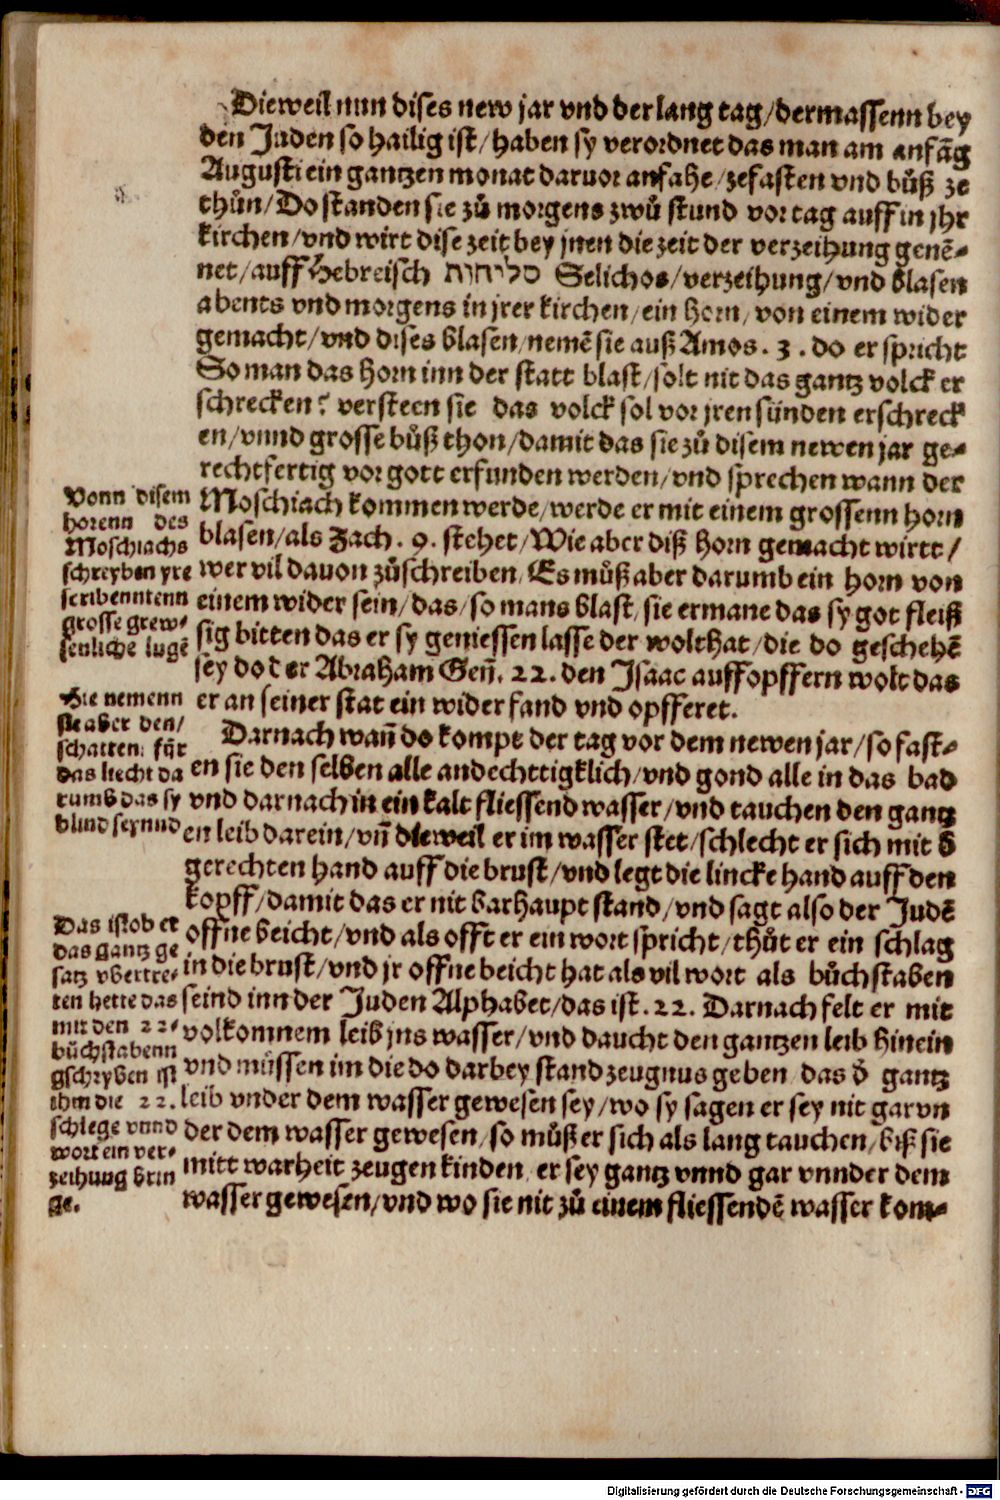 Dieweil nun dises new jar vnd der lang tag/dermassenn bey
den Juden so hailig ist/haben sy verordnet das man am anfāg
Augusti ein gantzen monat daruor anfahe/zefasten vnd bůß ze
thůn/Do standen sie zů morgens zwů stund vor tag auff in jhr
kirchen/vnd wirt dise zeit bey jnen die zeit der verzeihung genē-
net/auff Hebreisch סליחות Selichos/verzeihung/vnd blasen
abents vnd morgens in jrer kirchen/ein horn/von einem wider
gemacht/vnd dises blasen/nemē sie auß Amos. 3. do er spricht
So man das horn inn der statt blast/solt nit das gantz volck er
schrecken? versteen sie das volck sol vor jren sünden erschreck
en/vnnd grosse bůß thon/damit das sie zů disem newen jar ge-
rechtfertig vor gott erfunden werden/vnd sprechen wann der
Moschiach kommen werde/werde er mit einem grossenn horn
blasen/als Zach. 9. stehet/Wie aber diß horn gemacht wirtt/
wer vil dauon zůschreiben/Es můß aber darumb ein horn von
einem wider sein/das/so mans blast/sie ermane das sy got fleiß
sig bitten das er sy geniessen lasse der wolthat/die do geschehē
sey do der Abraham Geñ. 22. den Isaac auffopffern wolt das
er an seiner stat ein wider fand vnd opfferet.
Darnach wañ do kompt der tag vor dem newen jar/so fast-
en sie den selben alle andechttigklich/vnd gond alle in das bad
vnd darnach in ein kalt fliessend wasser/vnd tauchen den gantz
en leib darein/vñ dieweil er im wasser stet/schlecht er sich mit ð
gerechten hand auff die brust/vnd legt die lincke hand auff den
kopff/damit das er nit barhaupt stand/vnd sagt also der Judē
offne beicht/vnd als offt er ein wort spricht/thůt er ein schlag
in die brust/vnd jr offne beicht hat als vil wort als bůchstaben
seind inn der Juden Alphabet/das ist. 22. Darnach felt er mit
volkomnem leib jns wasser/vnd daucht den gantzen leib hinein
vnd müssen im die do darbey stand zeugnus geben das ð gantz
leib vnder dem wasser gewesen sey/wo sy sagen er sey nit gar vn
der dem wasser gewesen/so můß er sich als lang tauchen/biß sie
mitt warheit zeugen kinden er sey gantz vnnd gar vnnder dem
wasser gewesen/vnd wo sie nit zů einem fliessendē wasser kom-
Vonn disem
horenn des
Moschiachs
schreyben yre
scribenntenn
grosse grew-
senliche lugē
Hie nemenn
sie aber den/
schatten für
das liecht da
rumb das sy
blind seynnd
Das ist ob er
das gantz ge
satz vbertre-
ten hette das
mit den 22-
bůchstabenn
gschryben ist
ihm die 22.
schlege vnnd
wort ein ver-
zeihung brin
ge.
Digitalisierung gefördert durch die Deutsche Forschungsgemeinschaft - DFG